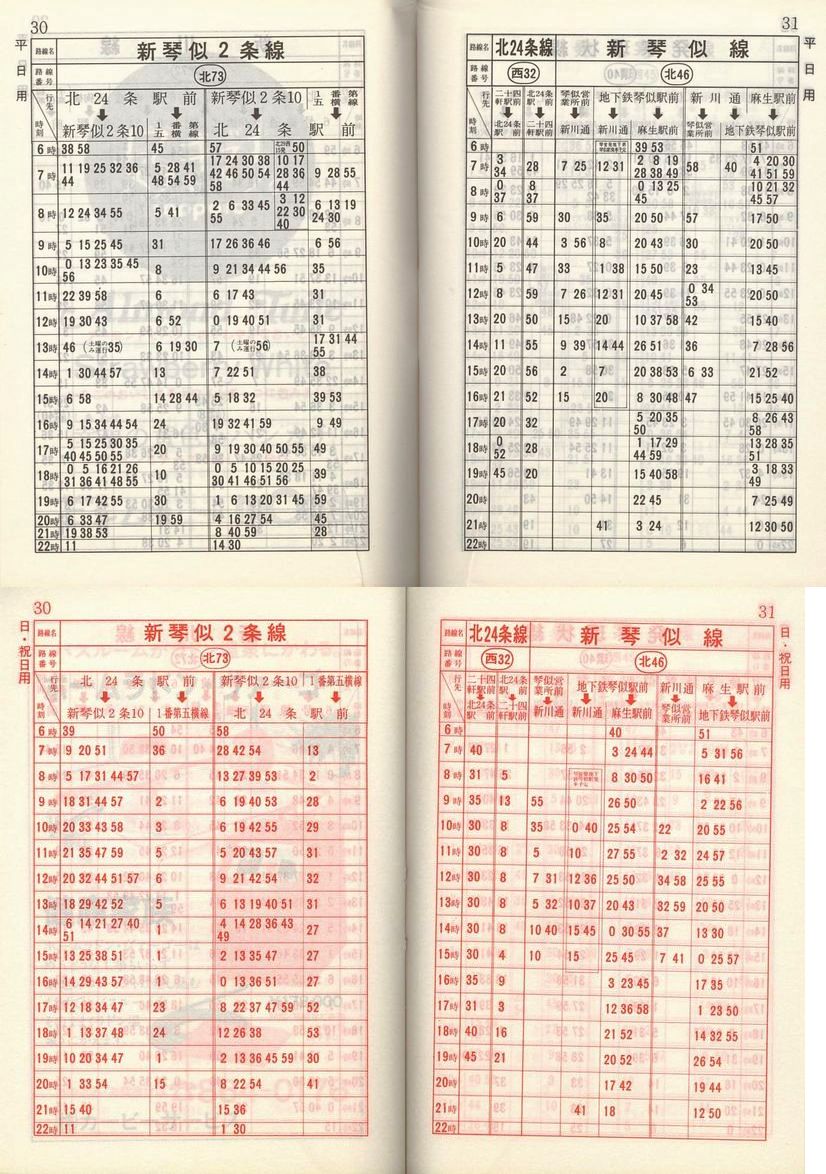 30
平日用
路線名 新琴似2条線
路線番号 北73
行先 時刻
北24条駅前 新琴似2条10 1番第五横線
新琴似2条10 1番第五横線 北24条駅前
6時 38 58 45 57 50
7時 11 19 25 32 36 44 5 28 41 48 54 59 17 24 30 38 42 46 50 54 10 17 28 36 44 9 28 55
8時 12 24 34 55 5 41 2 6 33 45 55 3 12 22 30 40 6 13 19 24 30
9時 5 15 25 45 31 17 26 36 46 6 56
10時 0 13 23 35 45 56 8 9 21 34 44 56 35
11時 22 39 58 6 6 17 43 31
12時 19 30 43 6 52 0 19 40 51 31
13時 46 (土曜のみ運行35) 6 19 30 7 (土曜のみ運行56) 17 31 44 55
14時 1 30 44 57 13 7 22 51 38
15時 6 58 14 28 44 5 18 32 39 53
16時 9 15 34 44 54 24 19 32 41 59 9 49
17時 5 15 25 30 35 40 45 50 55 20 9 19 30 40 50 55 49
18時 0 5 16 21 26 31 36 41 48 55 10 0 5 10 15 20 25 30 41 46 51 56 39
19時 6 17 42 55 30 1 6 13 20 31 45 59
20時 6 33 47 19 59 4 16 27 54 45
21時 19 38 53 8 40 59 28
22時 11 14 30
31
平日用
路線名 北24条線 新琴似線
路線番号 西32 北46
行先 時刻
二十四軒駅前 北24条駅前 琴似営業所前 地下鉄琴似駅前 新川通 麻生駅前
北24条駅前 二十四軒駅前 新川通 新川通 麻生駅前 琴似営業所前 地下鉄琴似駅前
6時 39 53 51
7時 3 34 28 7 25 12 31 2 8 19 28 38 49 58 40 4 20 30 41 51 59
8時 0 37 8 37 0 13 25 45 10 21 32 45 57
9時 6 59 30 35 20 50 57 17 50
10時 20 44 3 56 8 20 43 30 20 50
11時 5 47 33 38 15 50 23 13 45
12時 8 59 7 26 12 31 20 45 0 34 53 20 50
13時 20 50 15 20 10 37 58 42 15 40
14時 11 55 9 39 14 44 26 51 36 7 28 56
15時 20 56 2 7 20 38 53 6 33 21 52
16時 21 52 15 20 8 30 48 47 15 25 40
17時 20 32 5 20 35 50 8 26 43 58
18時 0 52 28 1 17 29 44 59 13 28 35 51
19時 45 20 15 40 58 3 18 33 49
20時 22 45 7 25 49
21時 41 3 24 12 30 50
22時
30
日・祝日用
路線名 新琴似2条線
路線番号 北73
行先 時刻
北24条駅前 新琴似2条10 1番第五横線
新琴似2条10 1番第五横線 北24条駅前
6時 39 50 58
7時 9 20 51 36 28 42 54 13
8時 5 17 31 44 57 13 27 39 53 2
9時 18 31 44 57 2 6 19 40 53 28
10時 20 33 43 58 3 6 19 42 55 29
11時 21 35 47 59 5 5 20 43 57 31
12時 20 32 44 51 57 6 9 21 42 54 32
13時 18 29 42 52 5 6 13 19 40 51 31
14時 6 14 21 27 40 51 1 4 14 28 36 43 49 27
15時 13 25 38 51 1 2 13 35 47 27
16時 14 29 43 57 1 0 13 36 51 27
17時 12 18 34 47 23 8 22 37 47 59 52
18時 1 13 37 48 24 12 26 38 53
19時 10 20 34 47 1 2 13 36 45 59 30
20時 1 33 54 15 8 22 54 41
21時 15 40 15 36
22時 11 1 30
31
日・祝日用
路線名 北24条線 新琴似線
路線番号 西32 北46
行先 時刻
二十四軒駅前 北24条駅前 琴似営業所前 地下鉄琴似駅前 新川通 麻生駅前
北24条駅前 二十四軒駅前 新川通 新川通 麻生駅前 琴似営業所前 地下鉄琴似駅前
6時 40 51
7時 40 3 24 44 5 31 56
8時 31 5 8 30 50 16 41
9時 35 13 55 26 50 2 22 56
10時 30 8 35 0 40 25 54 22 20 55
11時 30 8 5 10 27 55 2 32 24 57
12時 30 8 7 31 12 36 25 50 34 58 25 55
13時 30 8 5 32 10 37 20 43 32 59 20 50
14時 30 8 10 40 15 45 0 30 55 37 13 30
15時 30 4 10 15 25 45 7 41 0 25 57
16時 35 9 3 23 45 17 35
17時 31 3 12 36 58 1 23 50
18時 40 16 21 52 14 32 55
19時 45 21 20 52 26 54
20時 17 42 19 44
21時 41 18 12 50
22時